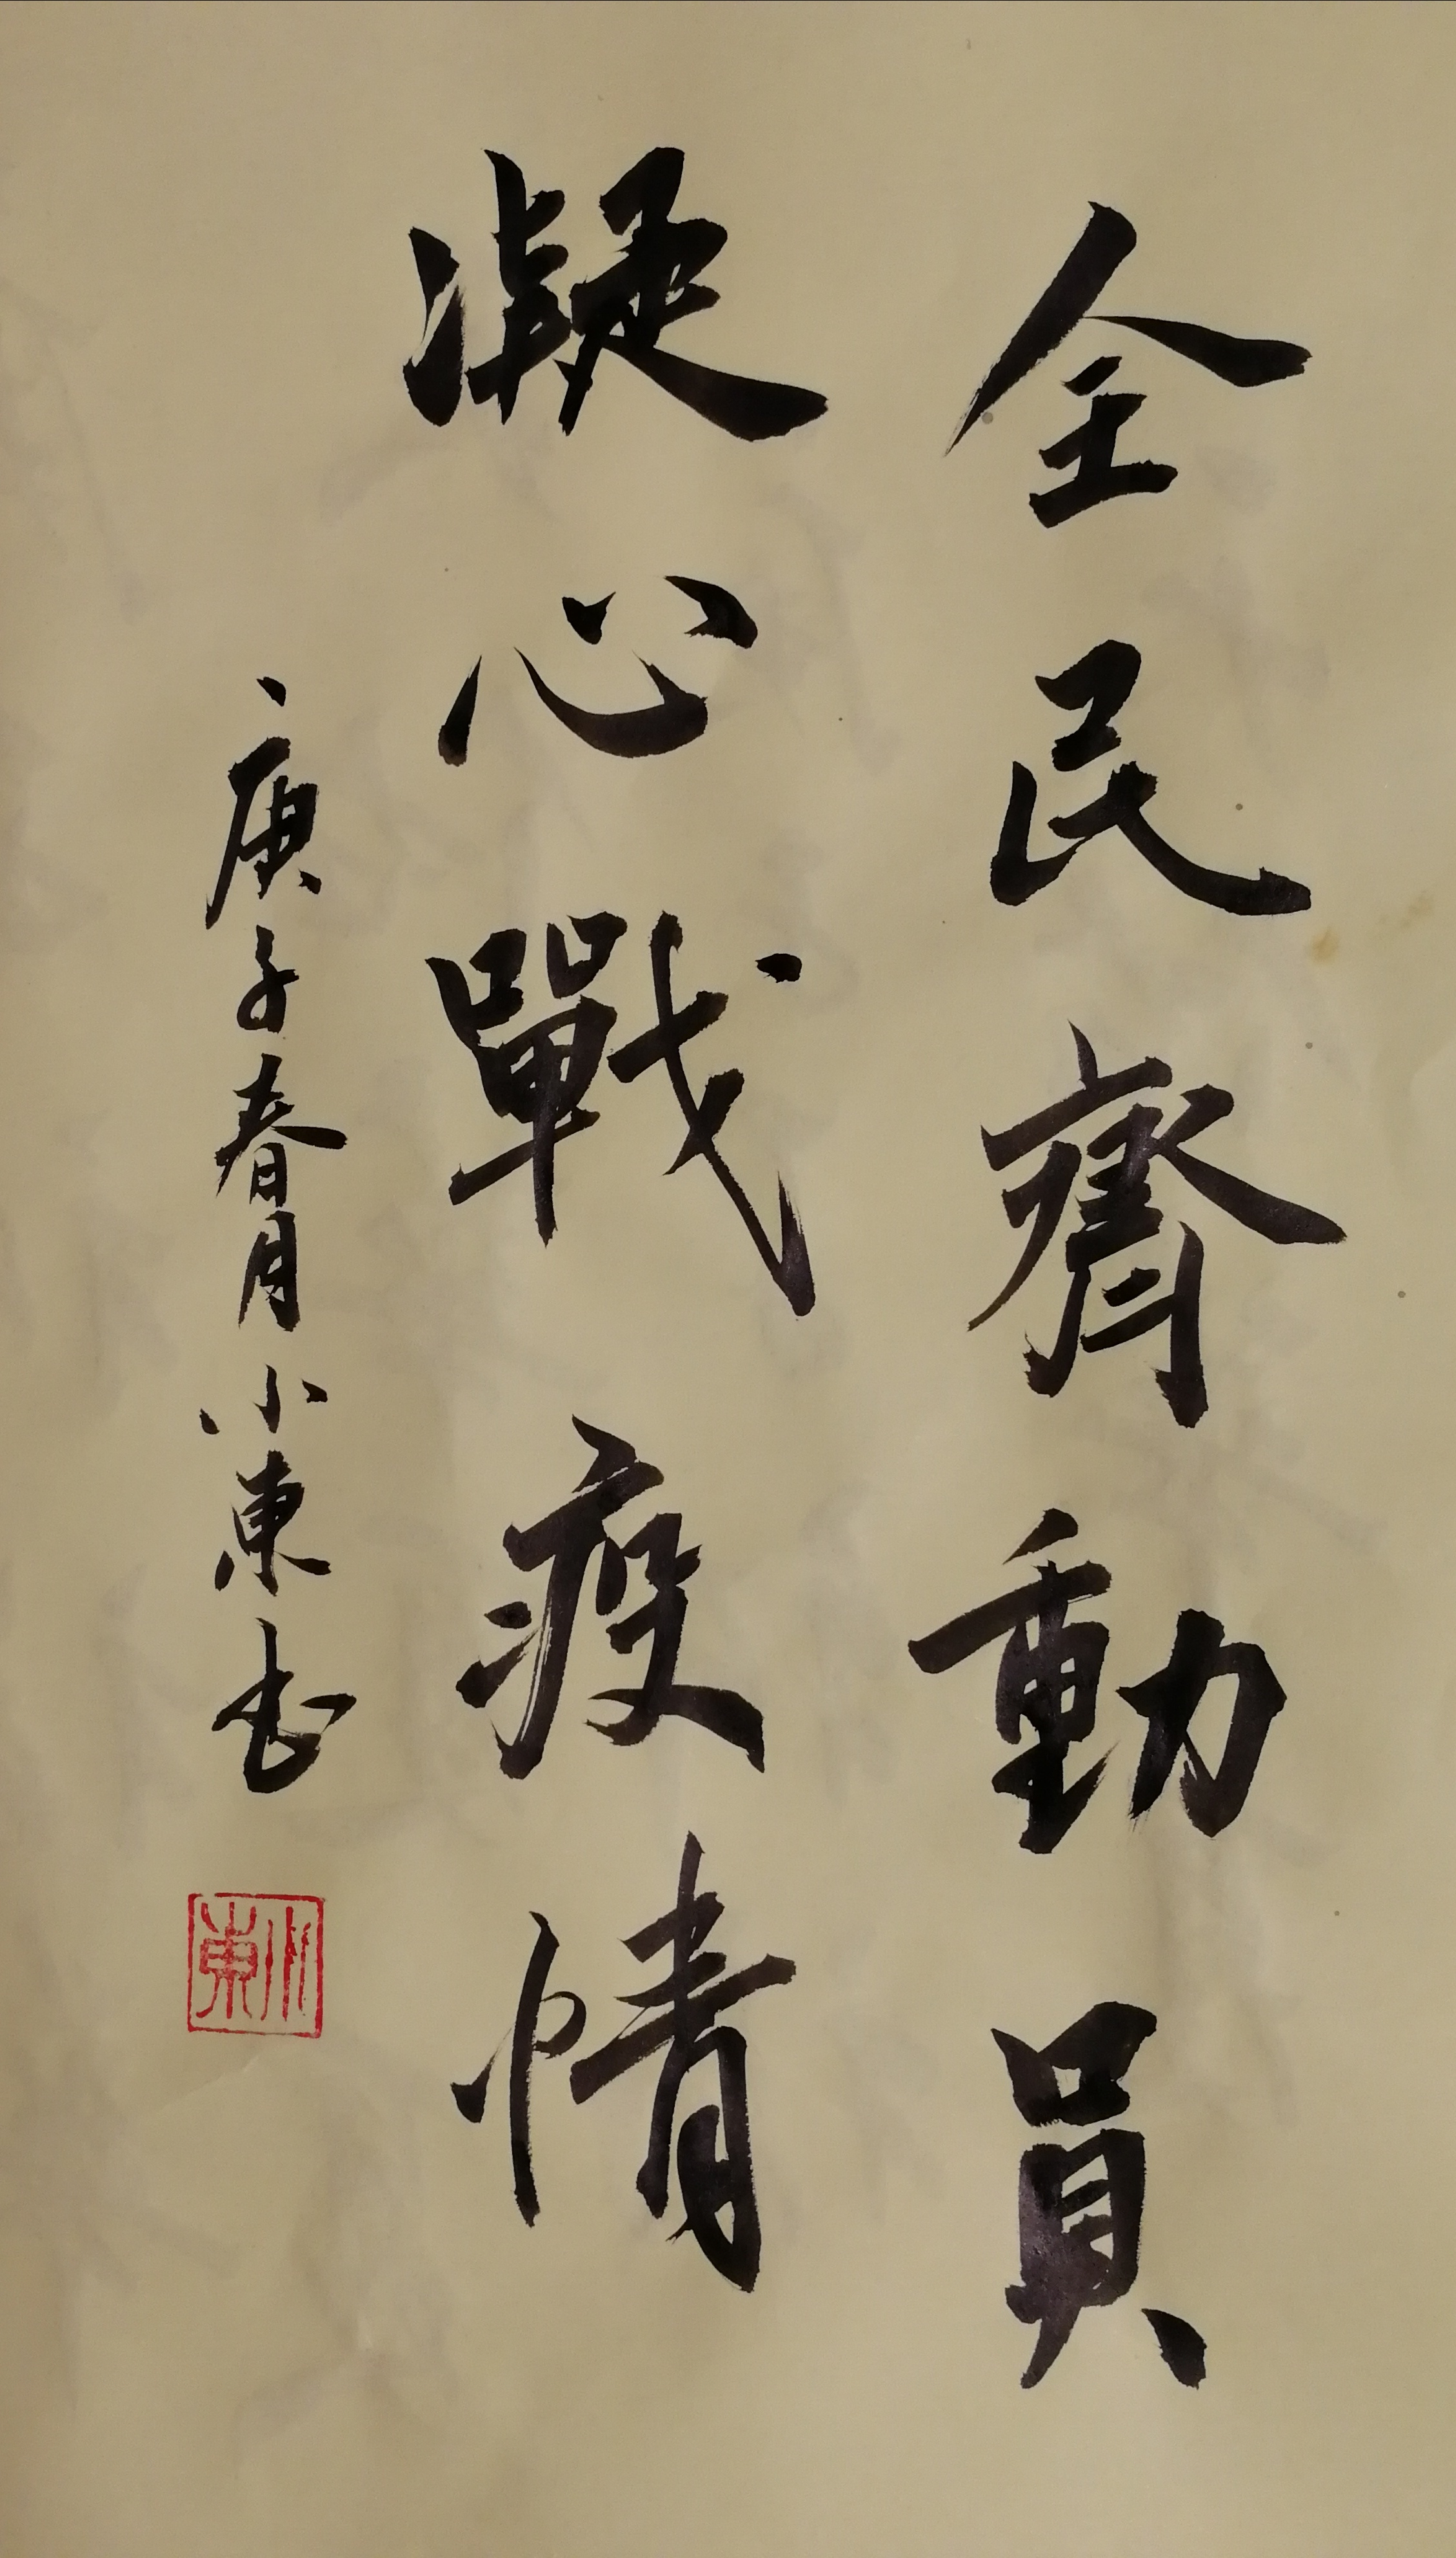 全民齊動員
凝心戰疫情
庚子春月小東书
小東